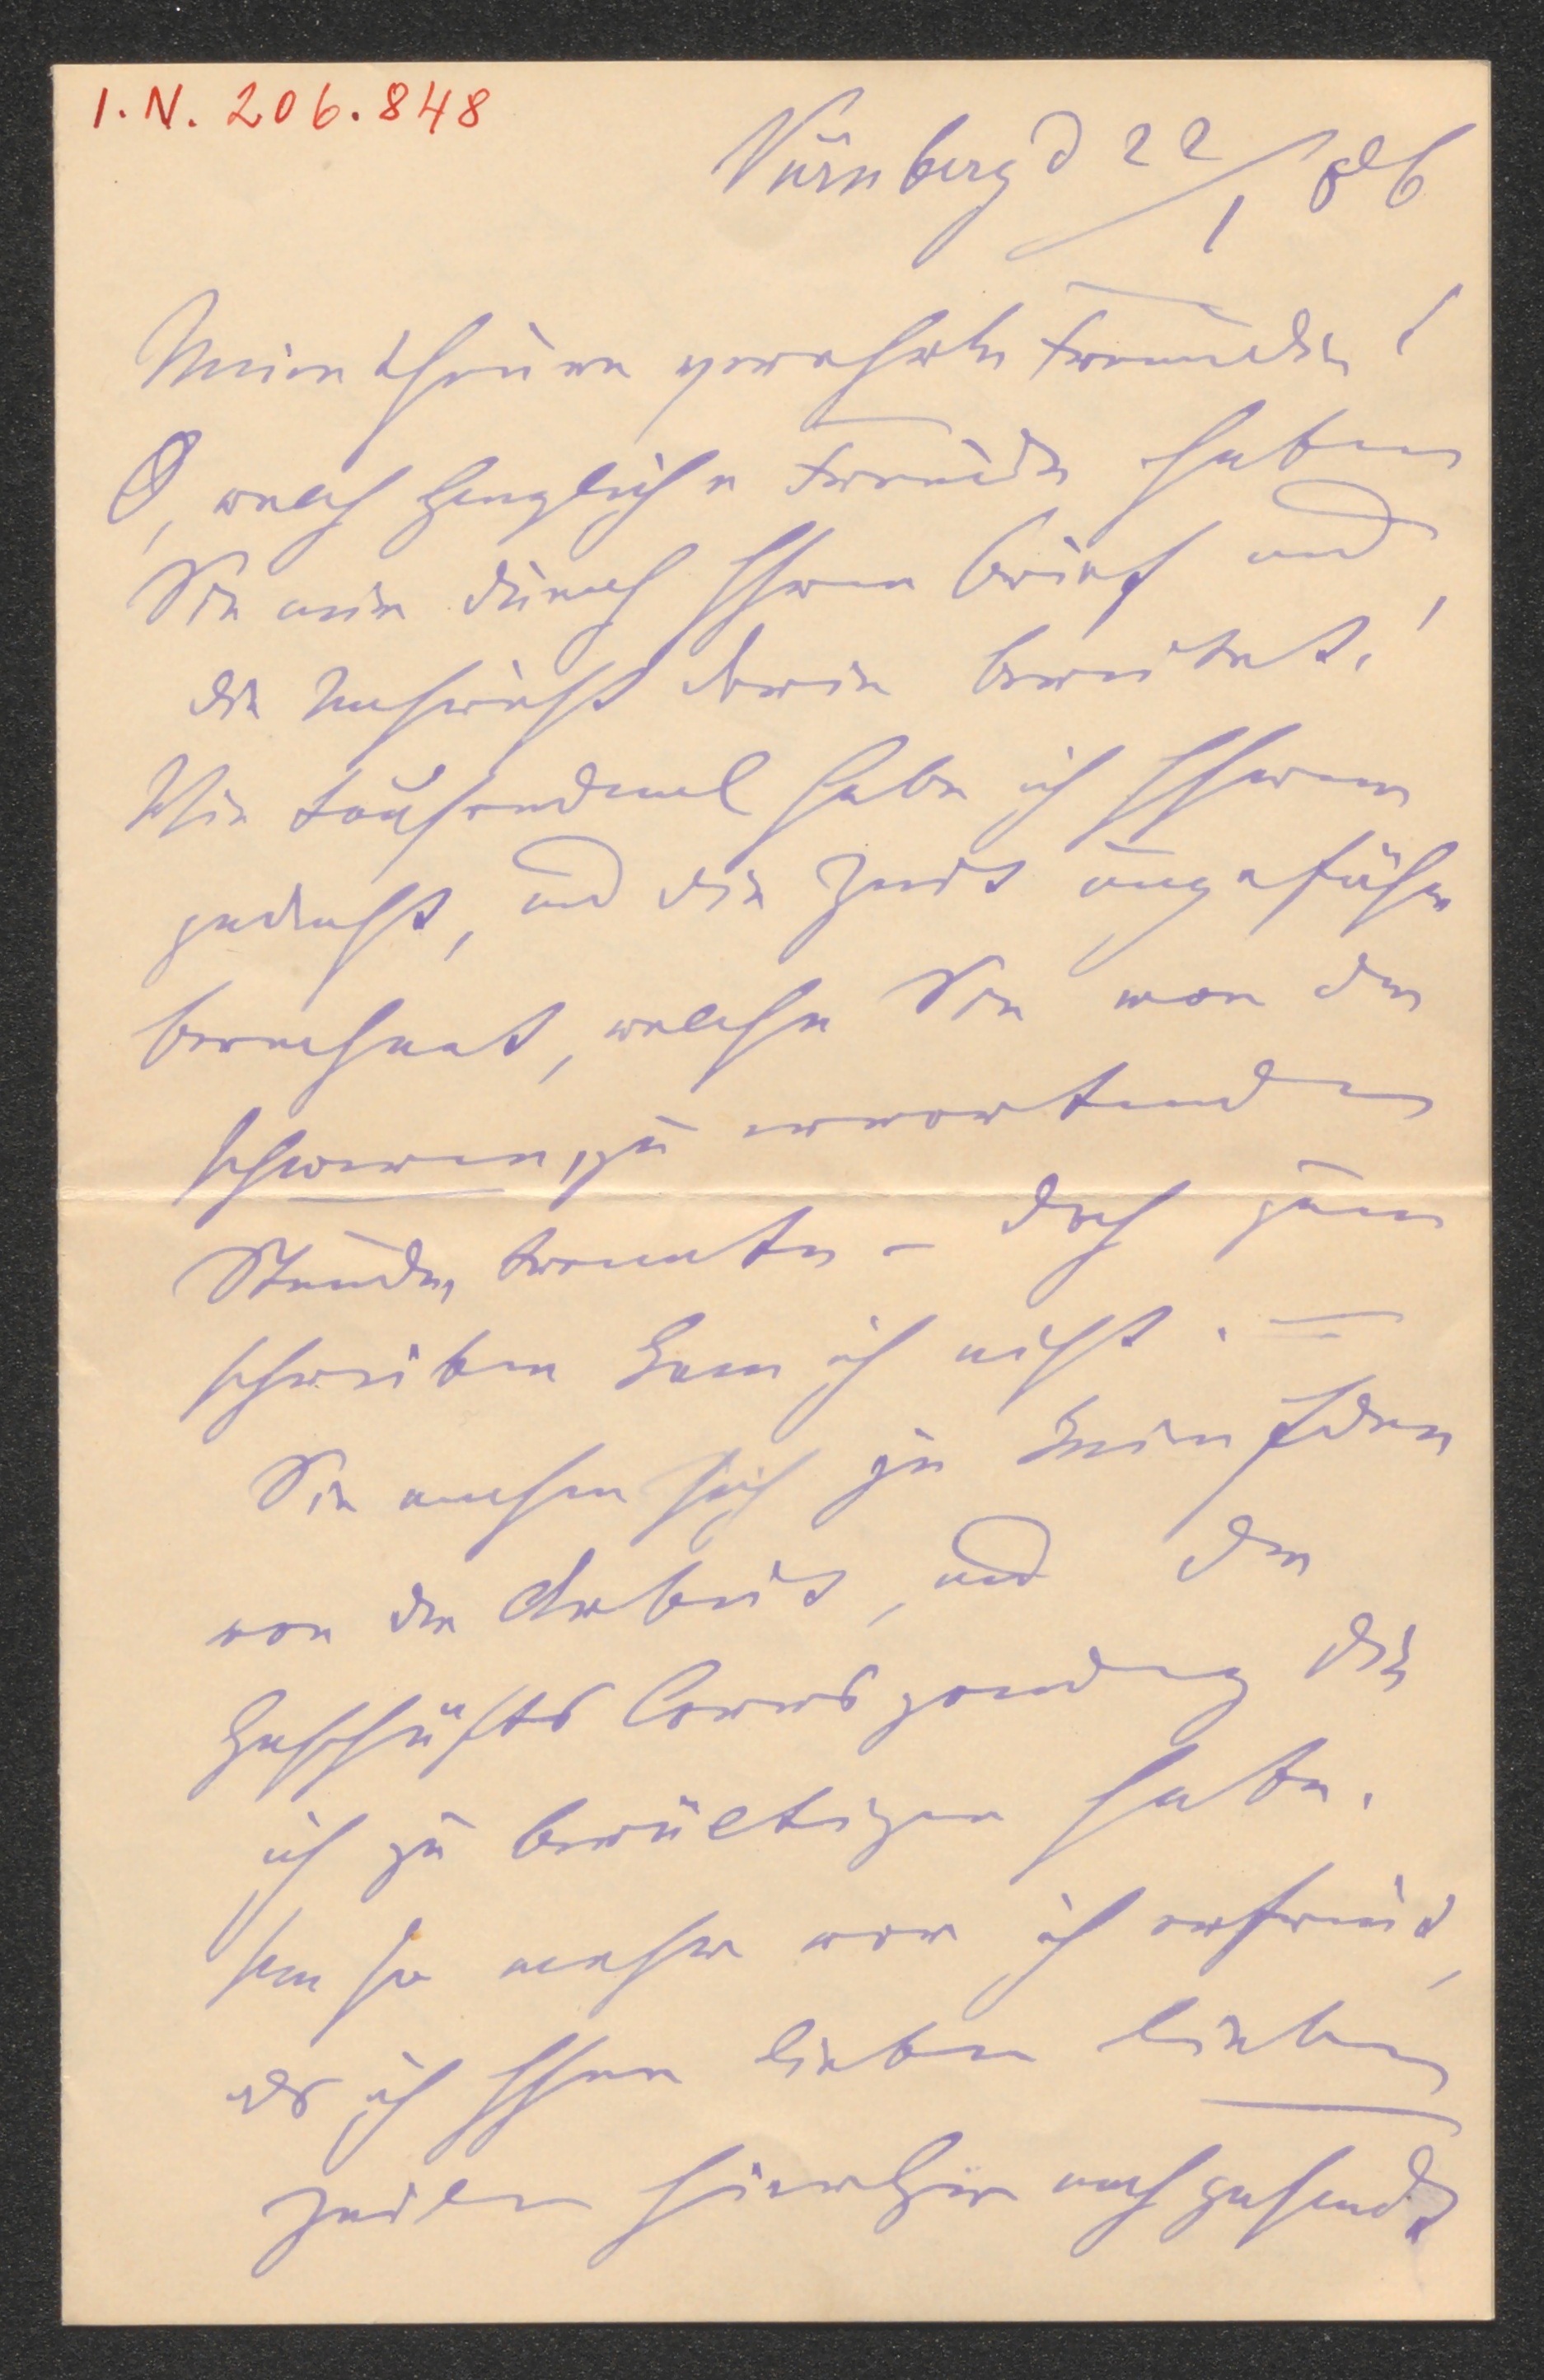 I.N. 206.848
Nürnberg d 22/1 886
Meine theure verehrte Freundin!
O, welch herzliche Freude haben
Sie mir durch Ihren Brief und
die Nachricht darin bereitet!
Wie tausendmal habe ich Ihrer
gedacht, und die Zeit ungefähr
berechnet, welche Sie von der
schweren, zu erwartenden
Stunde, trennte – doch zum
schreiben kam ich nicht. —
Sie machen sich ja keine Idee
von der Arbeit, und der
Geschäfts Correspondenz die
ich zu bewältigen habe.
Um so mehr war ich erfreut,
als ich Ihre lieben lieben
Zeilen hierher nachgesandt